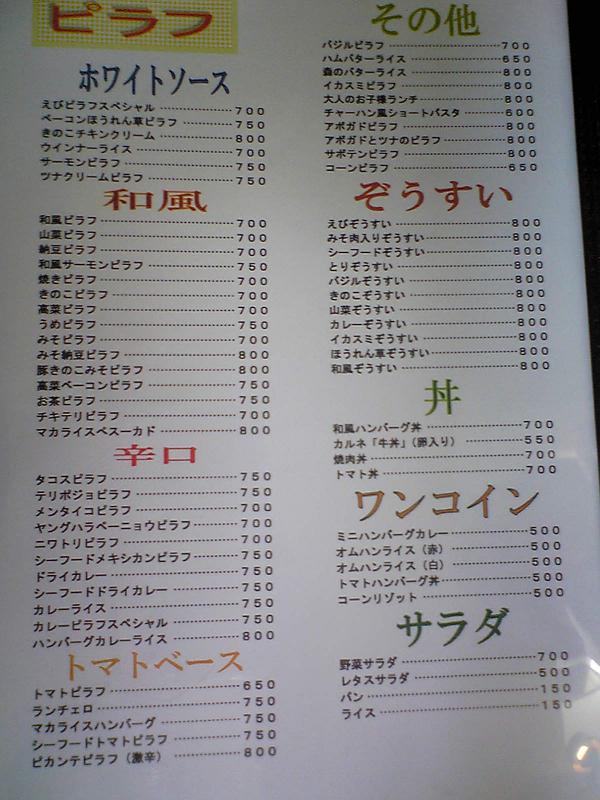 ピラフ
ホワイトソース
えびピラフスペシャル ………… 700
ベーコンほうれん草ピラフ ………… 750
きのこチキンクリーム ………… 800
ウインナーライス ………… 700
サーモンピラフ ………… 750
ツナクリームピラフ ………… 750
和風
和風ピラフ ………… 700
山菜ピラフ ………… 700
納豆ピラフ ………… 700
和風サーモンピラフ ………… 750
焼きピラフ ………… 700
きのこピラフ ………… 700
高菜ピラフ ………… 700
うめピラフ ………… 750
みそピラフ ………… 700
みそ納豆ピラフ ………… 800
豚きのこみそピラフ ………… 800
高菜ベーコンピラフ ………… 750
お茶ピラフ ………… 750
チキテリピラフ ………… 700
マカライスペスーカド ………… 800
辛口
タコスピラフ ………… 750
テリポジョピラフ ………… 750
メンタイコピラフ ………… 700
ヤングハラペーニョウピラフ ………… 700
ニワトリピラフ ………… 700
シーフードメキシカンピラフ ………… 750
ドライカレー ………… 750
シーフードドライカレー ………… 750
カレーライス ………… 750
カレーピラフスペシャル ………… 750
ハンバーグカレーライス ………… 800
トマトベース
トマトピラフ ………… 650
ランチェロ ………… 750
マカライスハンバーグ ………… 750
シーフードトマトピラフ ………… 750
ピカンテピラフ（激辛） ………… 800
その他
バジルピラフ ………… 700
ハムバターライス ………… 650
森のバターライス ………… 800
イカスミピラフ ………… 800
大人のお子様ランチ ………… 800
チャーハン風ショートパスタ ………… 600
アボガドピラフ ………… 800
アボガドとツナのピラフ ………… 800
サボテンピラフ ………… 800
コーンピラフ ………… 650
ぞうすい
えびぞうすい ………… 800
みそ肉入りぞうすい ………… 800
シーフードぞうすい ………… 800
とりぞうすい ………… 800
バジルぞうすい ………… 800
きのこぞうすい ………… 800
山菜ぞうすい ………… 800
カレーぞうすい ………… 800
イカスミぞうすい ………… 800
ほうれん草ぞうすい ………… 800
和風ぞうすい ………… 800
丼
和風ハンバーグ丼 ………… 700
カルネ「牛丼」（卵入り） ………… 550
焼肉丼 ………… 700
トマト丼 ………… 700
ワンコイン
ミニハンバーグカレー ………… 500
オムハンライス（赤） ………… 500
オムハンライス（白） ………… 500
トマトハンバーグ丼 ………… 500
コーンリゾット ………… 500
サラダ
野菜サラダ ………… 700
レタスサラダ ………… 500
パン ………… 150
ライス ………… 150